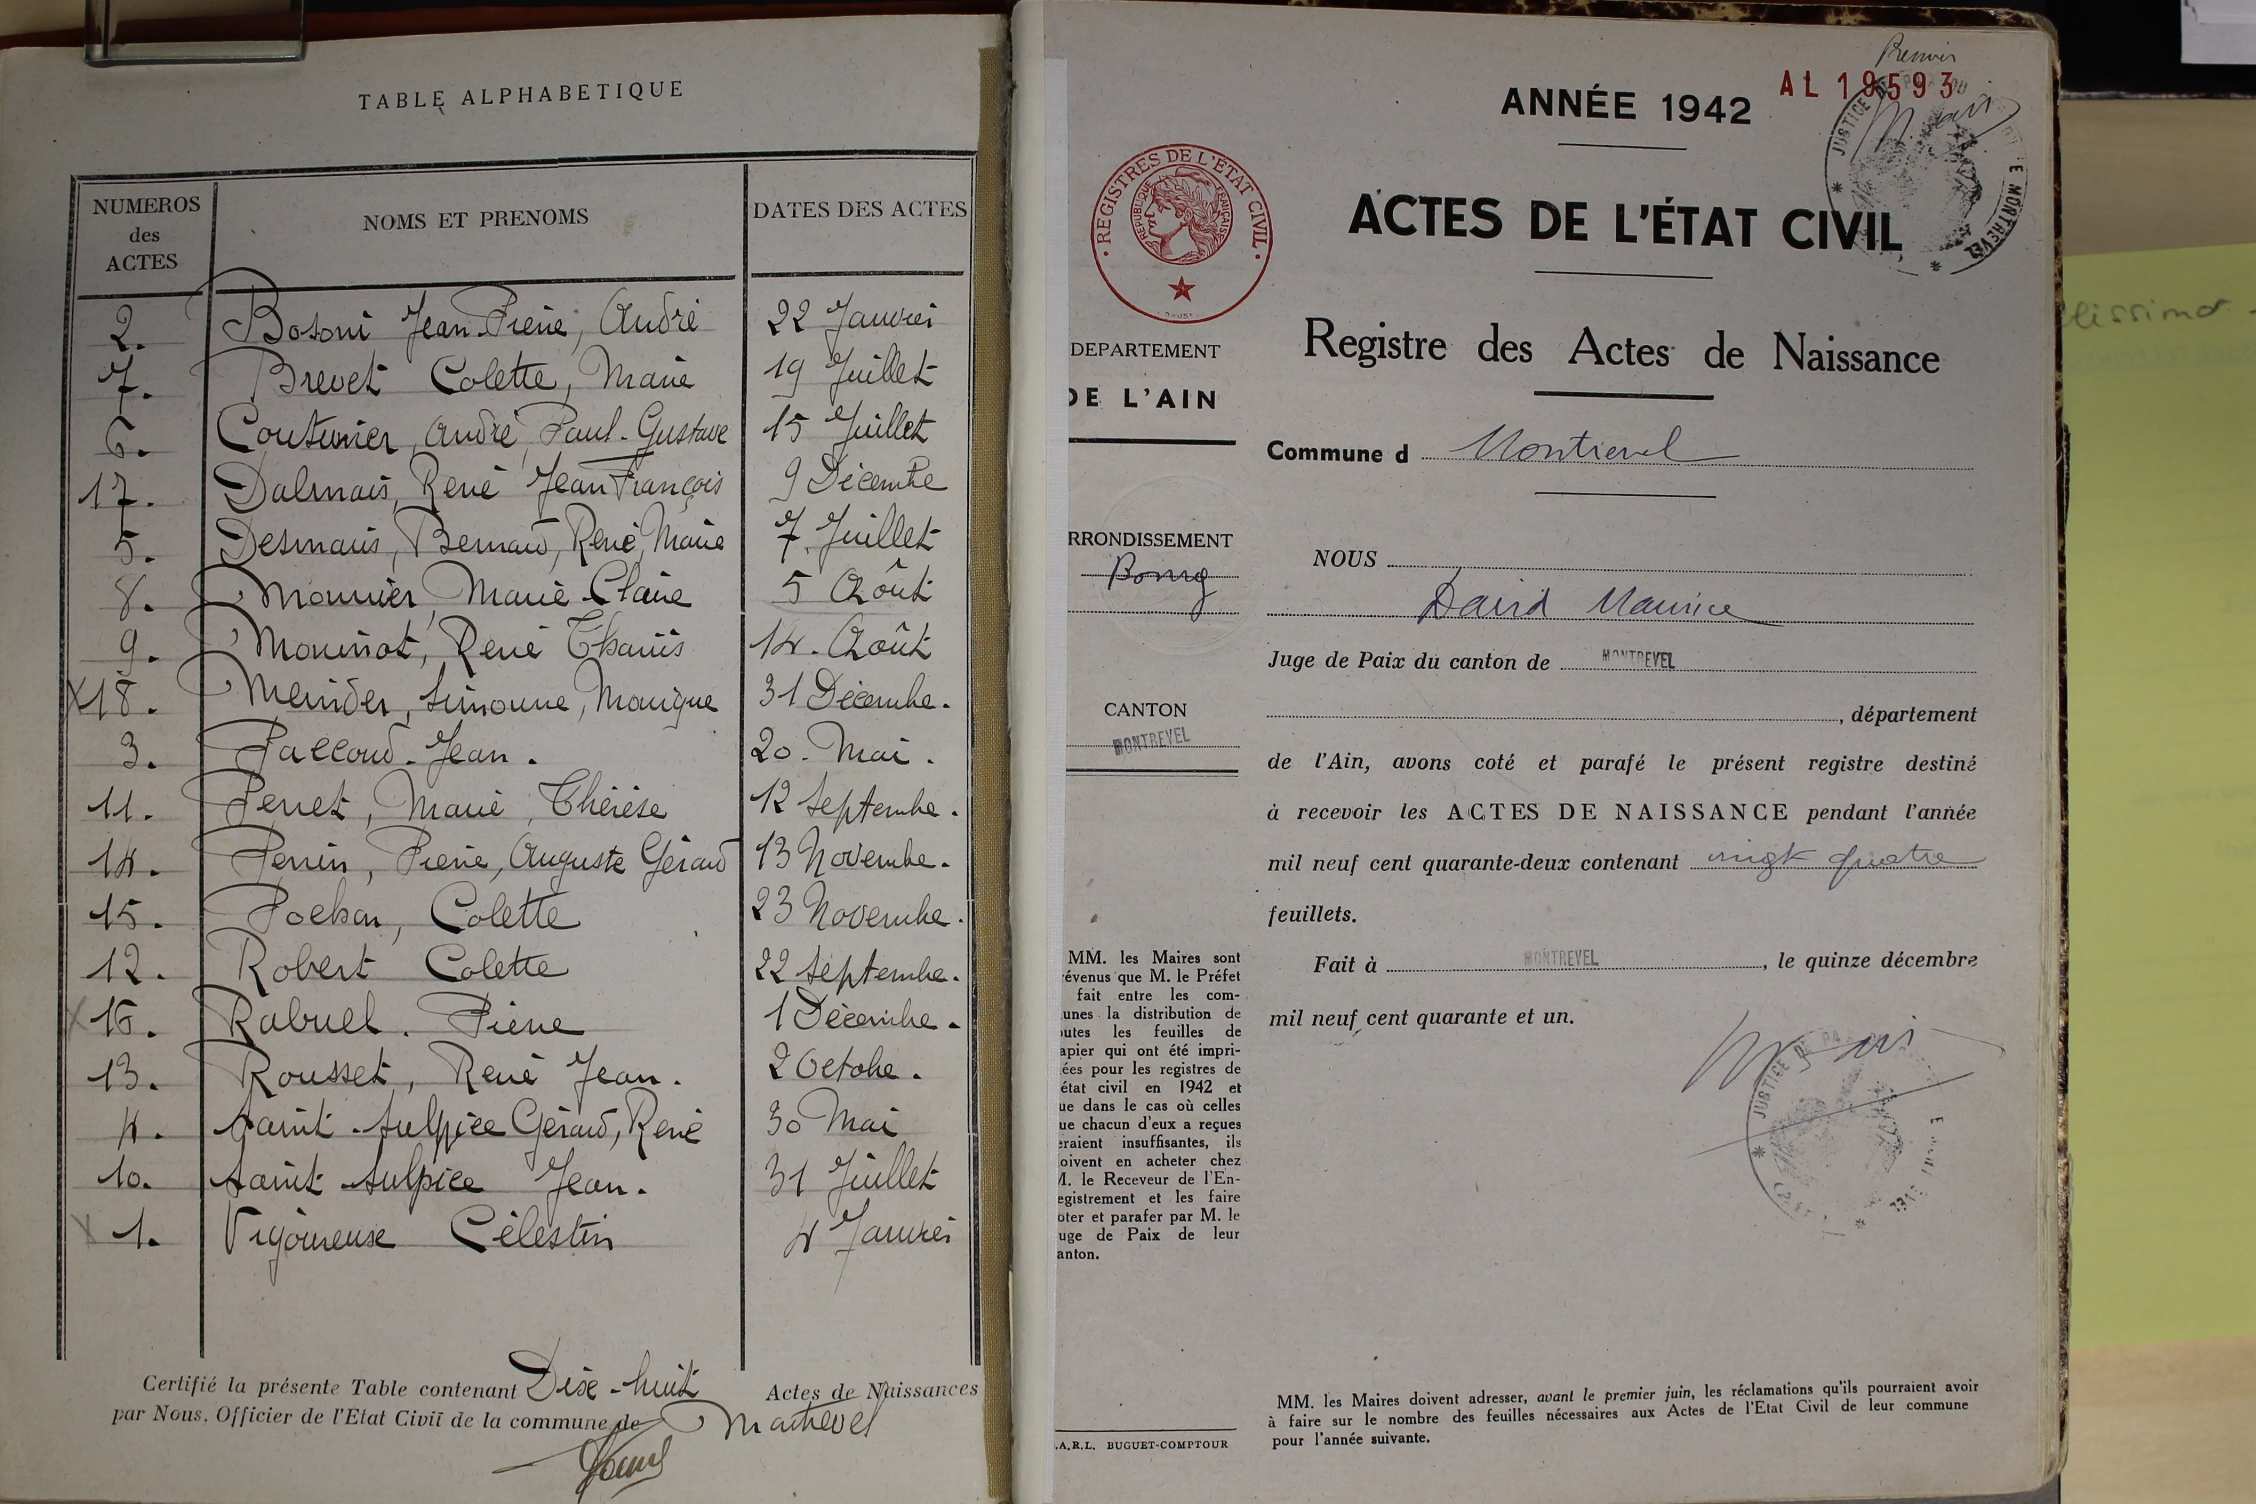 TABLE ALPHABETIQUE
NUMEROS des ACTES NOMS ET PRENOMS DATES DES ACTES
2. Bosoni Jean-Pierre, André 22 Janvier
7. Brevet Colette, Marie 19 Juillet
6. Couturier, André, Paul-Gustave 15 Juillet
17. Dalmais, René Jean François 9 Décembre
5. Desmaris, Bernard, René, Marie 7 Juillet
8. Monnier, Marie-Claire 5 Août
9. René 14. Août
X18. Simonne, Monique 31 Décembre.
3. Paccoud. Jean. 20. Mai.
11. Perret, Marie, Thérèse 12 Septembre.
14. Perrin, Pierre, Auguste Gérard 13 Novembre.
15. Pochon, Colette 23 Novembre.
12. Robert Colette 22 Septembre.
X16. Rabuel. Pierre 1 Décembre.
13. Rousset, René Jean. 2 Octobre.
4. Saint-Sulpice Gérard, René 30 Mai
10. Saint-Sulpice Jean. 31 Juillet
X 1. Vigoureuse Célestin 4 Janvier
Certifié la présente Table contenant Dix-huit Actes de Naissances
par Nous, Officier de l'Etat Civil de la commune de Montrevel
AL 19593
ANNÉE 1942
JUSTICE DE MONTREVEL
ACTES DE L'ÉTAT CIVIL
REGISTRES DE L'ÉTAT CIVIL
REPUBLIQUE FRANÇAISE
Registre des Actes de Naissance
DEPARTEMENT
DE L'AIN
Commune d Montrevel
RRONDISSEMENT
Bourg
CANTON
MONTREVEL
MM. les Maires sont
évenus que M. le Préfet
fait entre les com-
unes la distribution de
outes les feuilles de
apier qui ont été impri-
ées pour les registres de
état civil en 1942 et
ue dans le cas où celles
ue chacun d'eux a reçues
eraient insuffisantes, ils
oivent en acheter chez
M. le Receveur de l'En-
egistrement et les faire
oter et parafer par M. le
uge de Paix de leur
anton.
.A.R.L. BUGUET-COMPTOUR
NOUS
David Maurice
Juge de Paix du canton de MONTREVEL
, département
de l'Ain, avons coté et parafé le présent registre destiné
à recevoir les ACTES DE NAISSANCE pendant l'année
mil neuf cent quarante-deux contenant vingt quatre
feuillets.
Fait à MONTREVEL, le quinze décembre
mil neuf cent quarante et un.
JUSTICE DE PA
MM. les Maires doivent adresser, avant le premier juin, les réclamations qu'ils pourraient avoir
à faire sur le nombre des feuilles nécessaires aux Actes de l'Etat Civil de leur commune
pour l'année suivante.